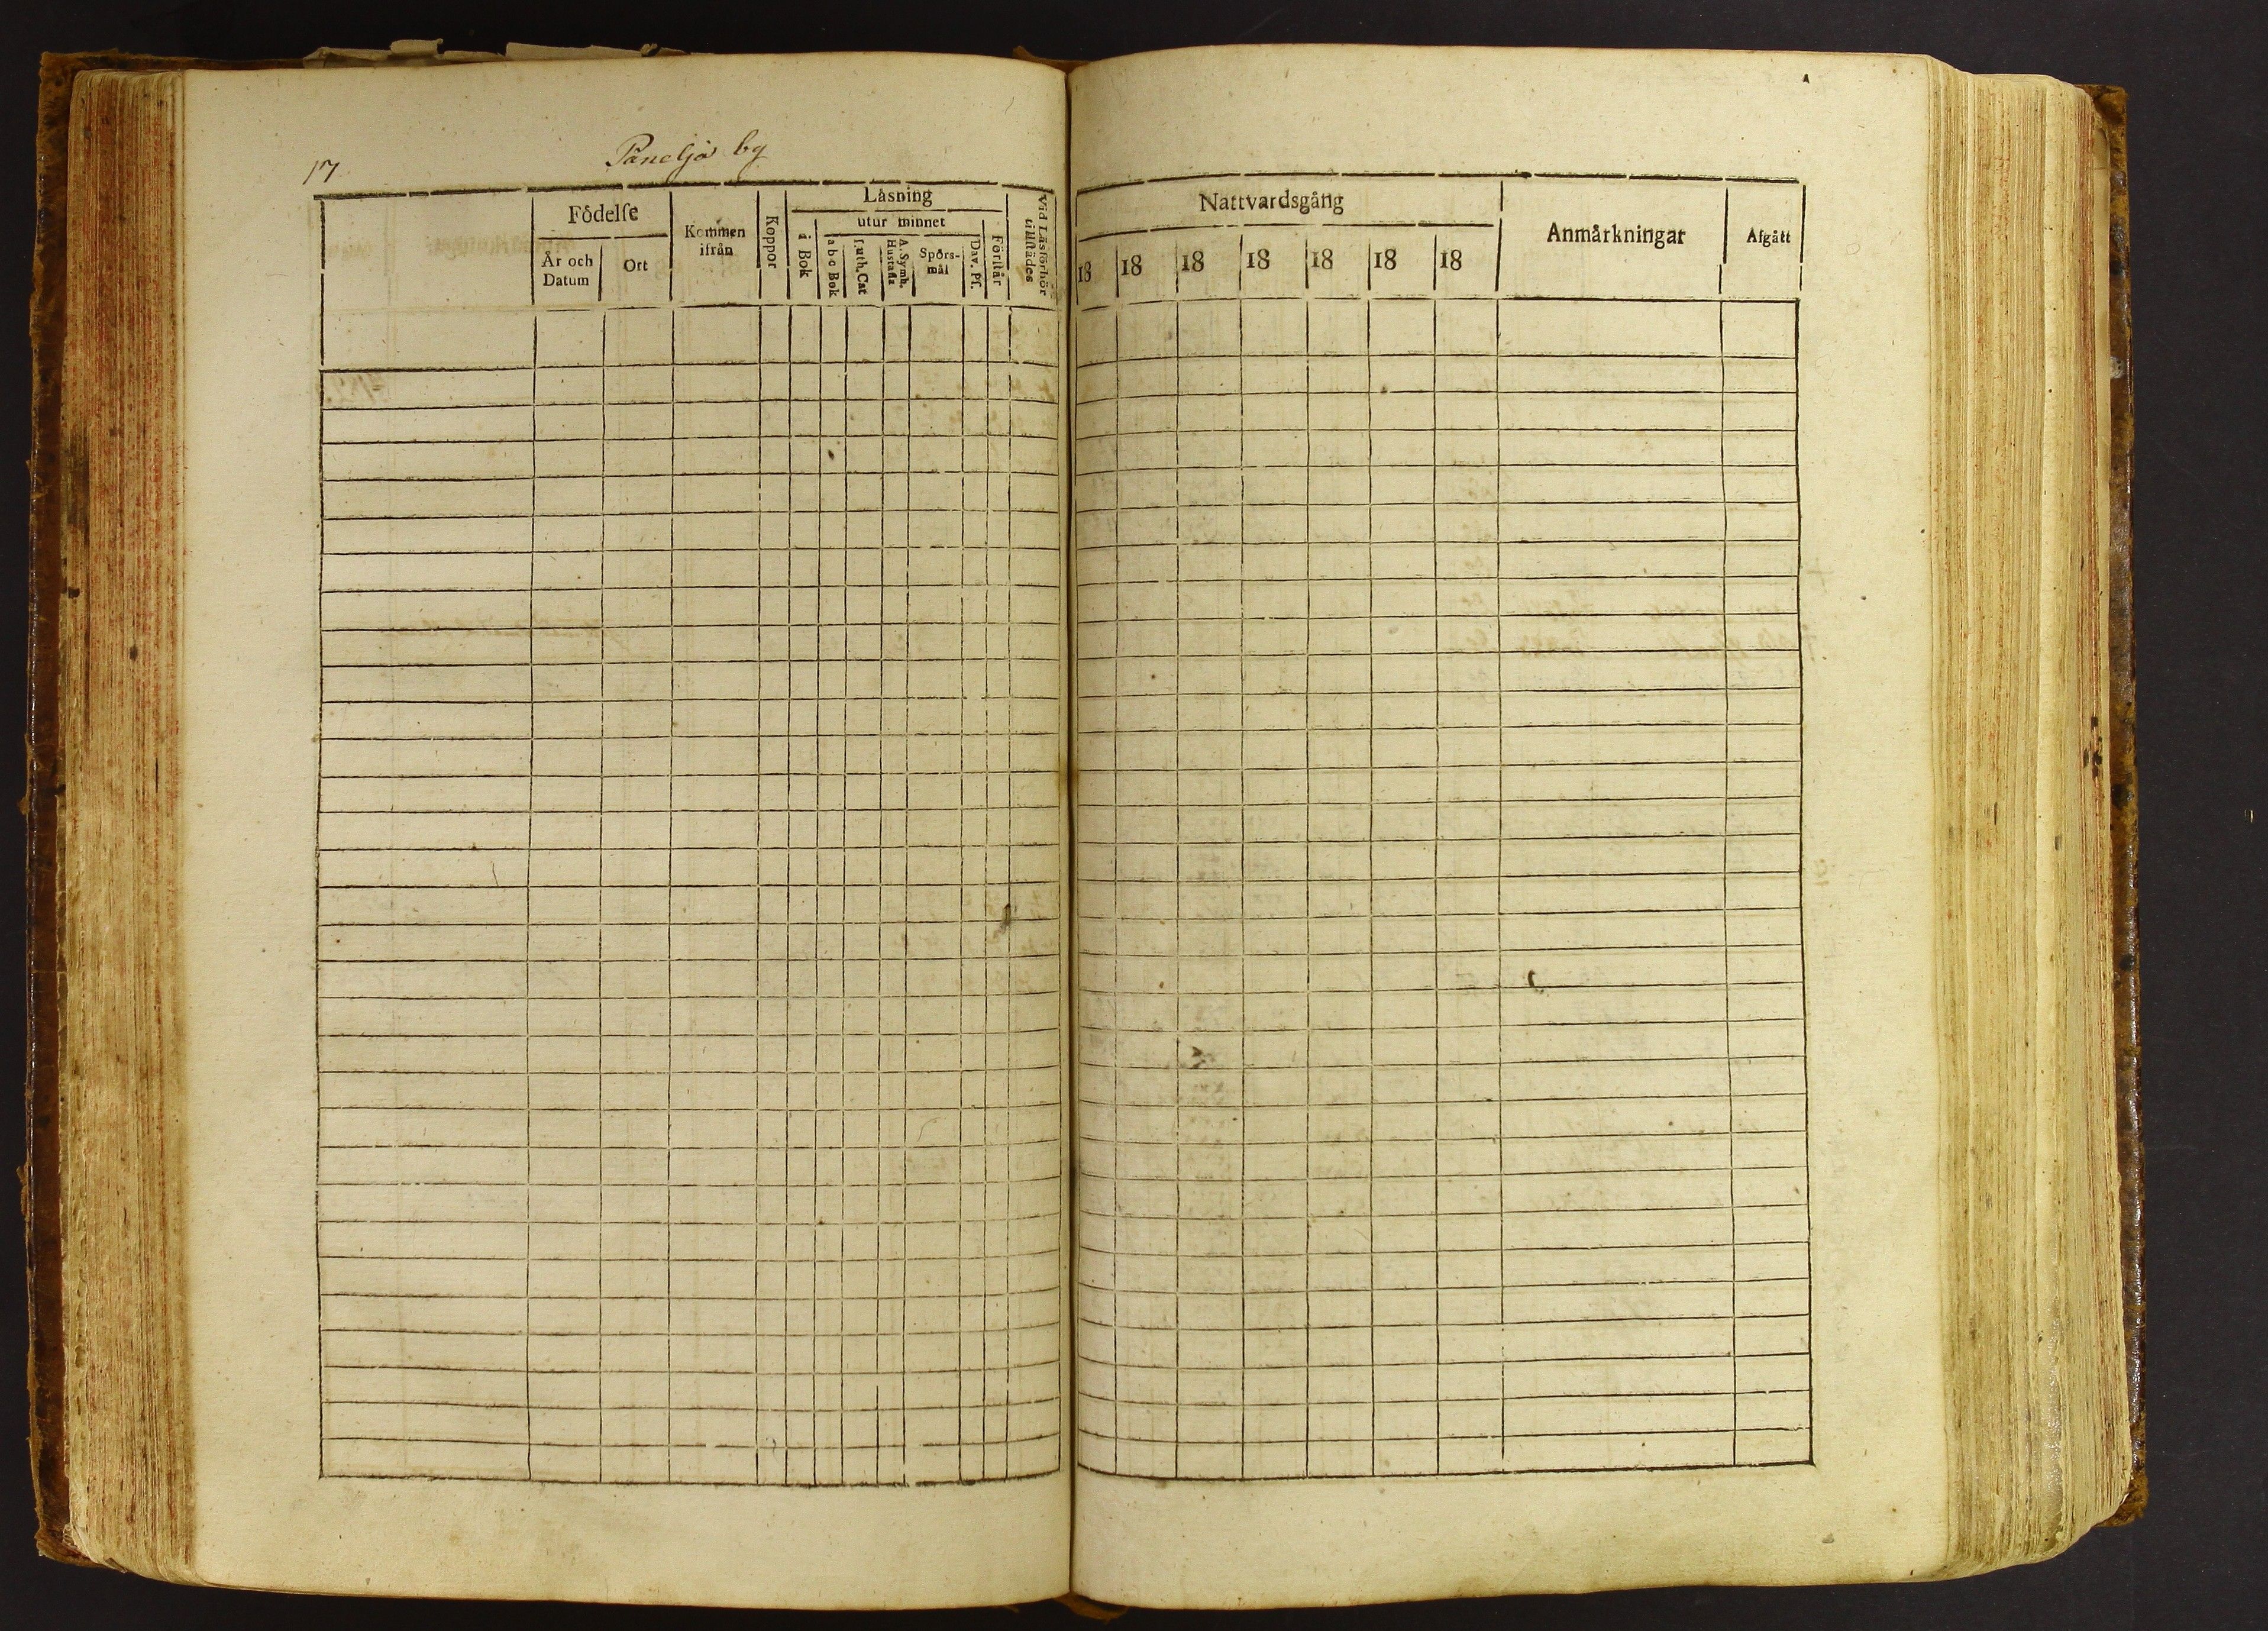 17
Päneljö by
Födelse
År och Datum
Ort
Kommen ifrån
Koppor
Läsning
i Bok
utur minnet
a b c Bok
Luth. Cat
A. Symb. Hustafla
Spörs-mål
Dav. Ps.
Förstår
Vid Läsförhör tillstädes
Nattvardsgång
18 18 18 18 18 18 18
Anmärkningar
Afgått